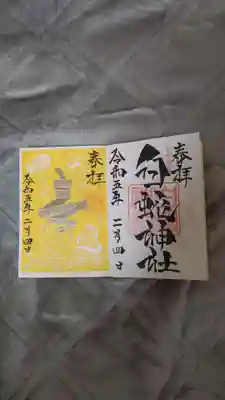 奉拝
白蛇神社
令和五年 二月四日
奉拝
令和五年 二月四日